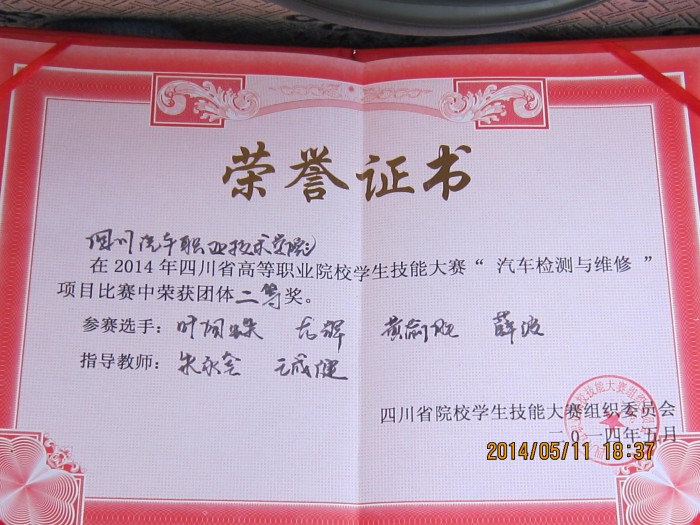 荣誉证书
四川汽车职业技术学院
在2014年四川省高等职业院校学生技能大赛“ 汽车检测与维修 ”
项目比赛中荣获团体二等奖。
参赛选手： 薛波
指导教师：朱永全
四川省院校学生技能大赛组织委员会
二〇一四年五月
2014/05/11 18:37